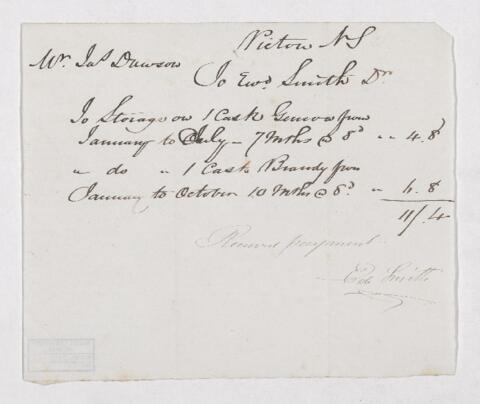 Pictou NS
Mr. Jas Dawson
To Ewd. Smith Dr.
To Storage on 1 Cask Geneva from
January to July - 7 Mths @ 8d " " 4.8
" do " 1 Cask Brandy from
January to October 10 Mths @ 8d. " 6.8
11/.4
Received payment
Ed Smith